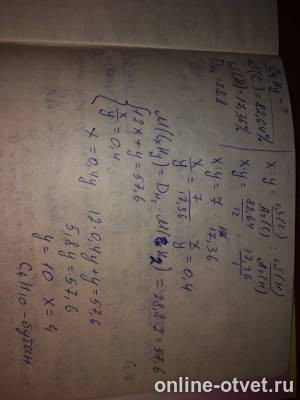 CxHy - ?
ω(C) = 82,64%
ω(H) = 17,36%
DH₂ = 28,8
x:y = ω(C)/Ar(C) : ω(H)/Ar(H)
x:y = 82,64/12 : 17,36/1
x:y = 7 : 17,36
x/y = 7/17,36  x/y = 0,4
M(CxHy) = DH₂ · M(H₂) = 28,8·2 = 57,6
{12x + y = 57,6
x/y = 0,4
12·0,4y + y = 57,6
x = 0,4y
5,8y = 57,6
y = 10  x = 4
C₄H₁₀ - бутан
online-otvet.ru